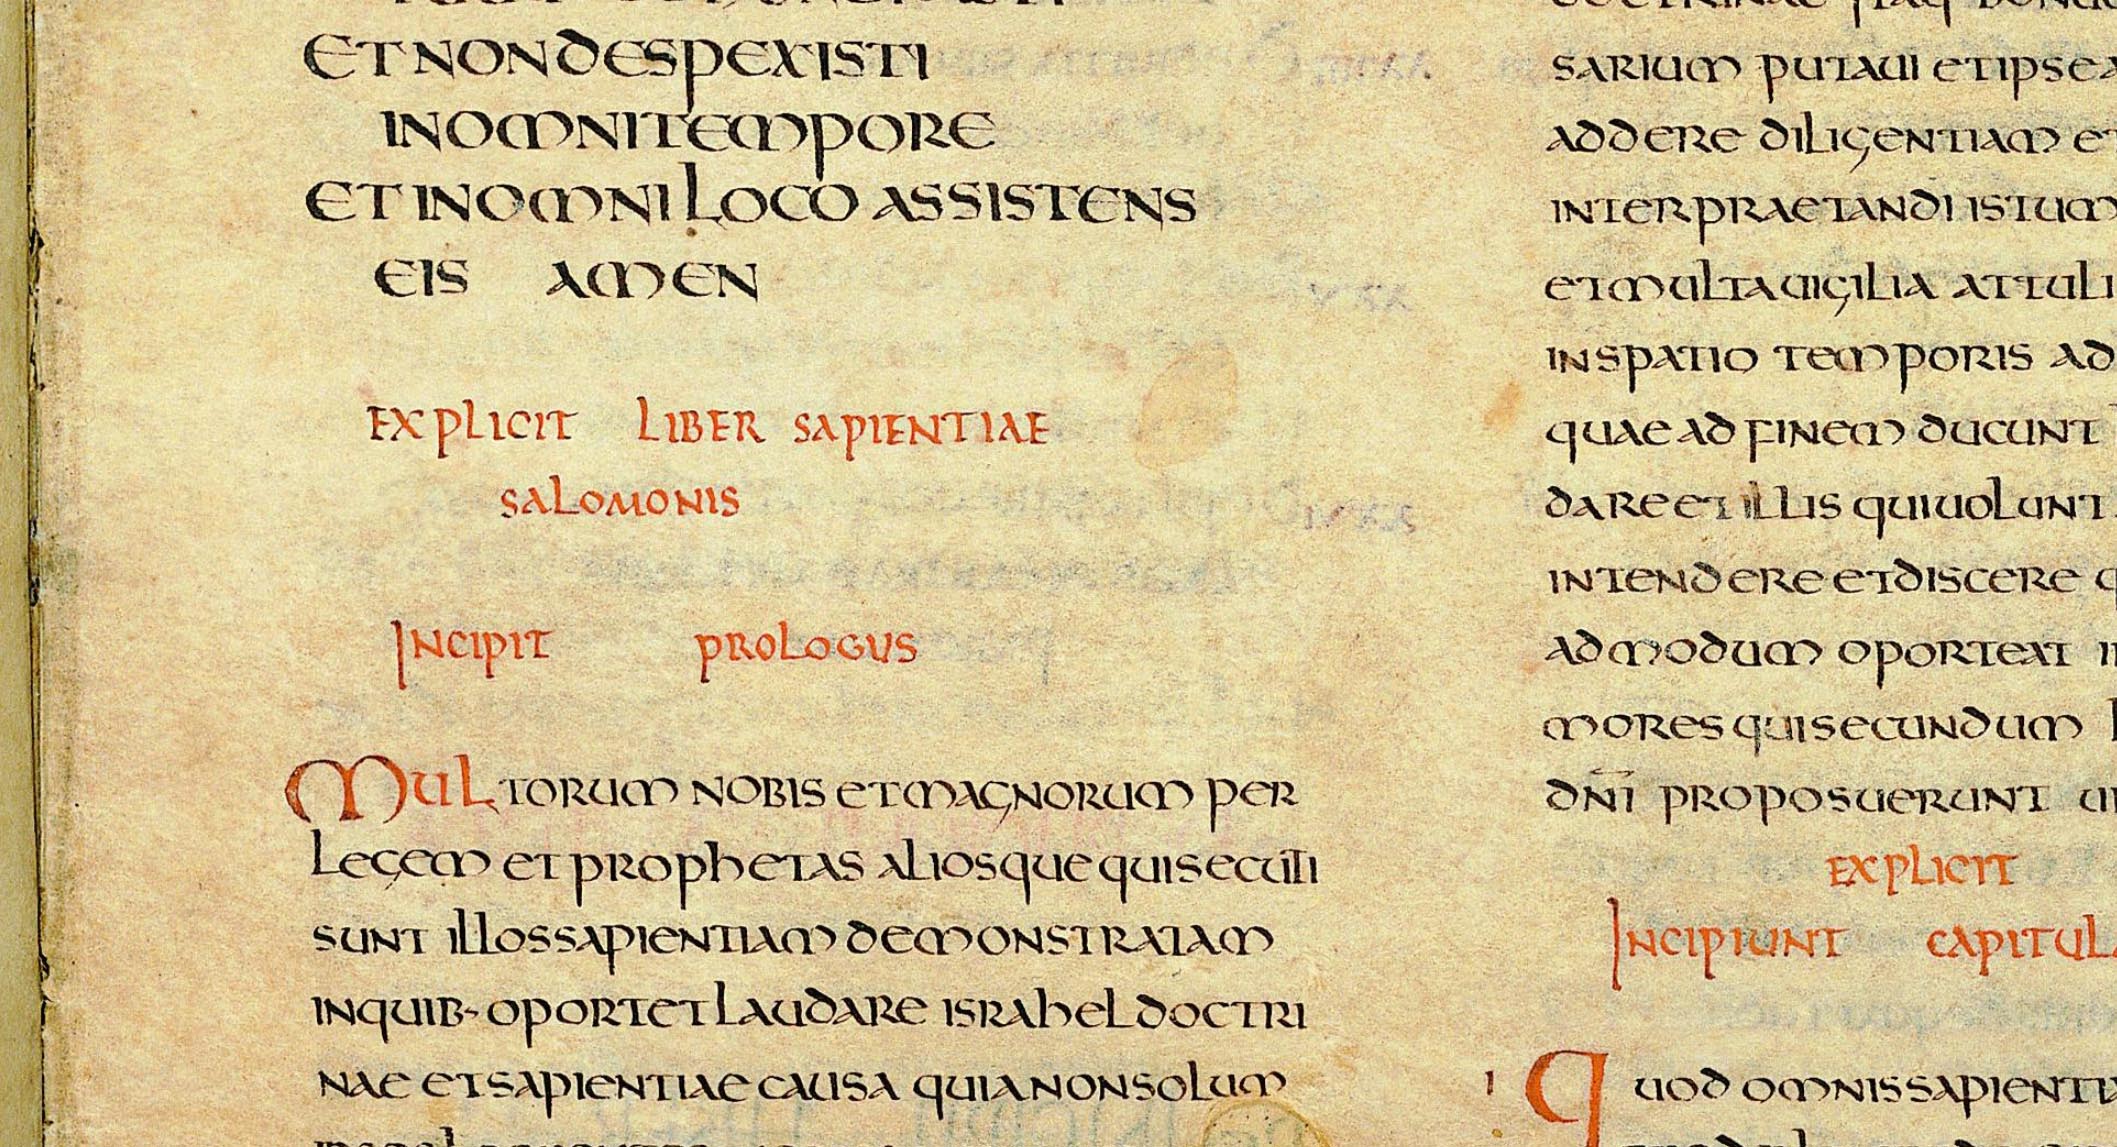 ETNONDESPEXISTI
INOMNITEMPORE
ETINOMNI LOCO ASSISTENS
EIS AMEN
EXPLICIT LIBER SAPIENTIAE
SALOMONIS
INCIPIT PROLOGUS
MULTORUM NOBIS ETMAGNORUM PER
LEGEM ET PROPHETAS ALIOSQUE QUISECUTI
SUNT ILLOSSAPIENTIAM DEMONSTRATAM
INQUIB- OPORTET LAUDARE ISRAHEL DOCTRI
NAE ETSAPIENTIAE CAUSA QUIANONSOLUM
SARIUM PUTAUI ETIPSE
ADDERE DILIGENTIAM ET
INTERPRAETANDI ISTUM
ETMULTAUIGILIA ATTULI
INSPATIO TEMPORIS AD
QUAE AD FINEM DUCUNT
DAREET ILLIS QUIUOLUNT
INTENDERE ETDISCERE
ADMODUM OPORTEAT
MORES QUISECUNDUM
DN̅I PROPOSUERUNT
EXPLICIT
INCIPIUNT CAPITULA
I QUOD OMNISSAPIENTIA